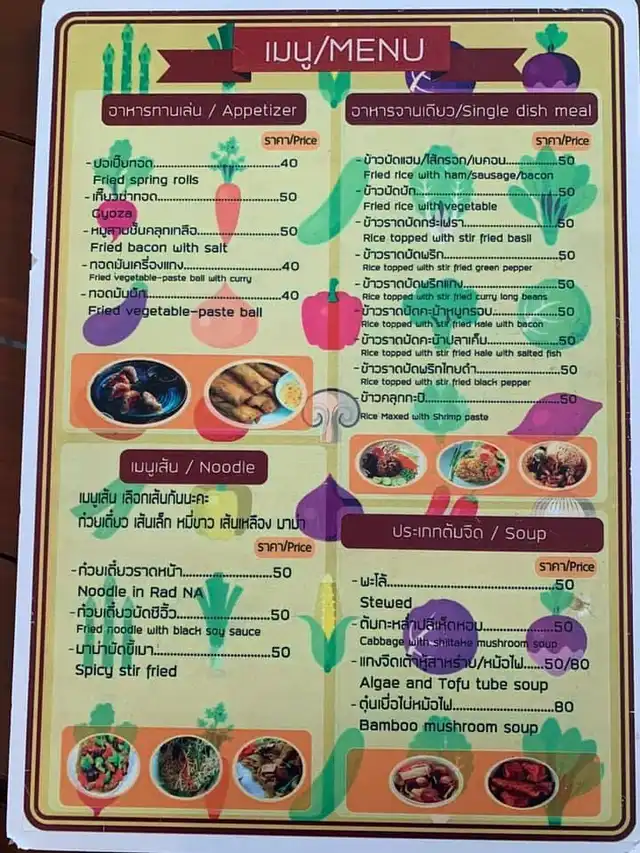 เมนู/MENU
อาหารทานเล่น / Appetizer
ราคา/Price
-ปอเปี๊ยทอด............................40
Fried spring rolls
-เกี๊ยวซ่าทอด............................50
Gyoza
-หมูสามชั้นคลุกเกลือ....................50
Fried bacon with salt
-ทอดมันเครื่องแกง........................40
Fried vegetable-paste ball with curry
-ทอดมันผัก............................40
Fried vegetable-paste ball
เมนูเส้น / Noodle
เมนูเส้น เลือกเส้นกันนะคะ
ก๋วยเตี๋ยว เส้นเล็ก หมี่ขาว เส้นเหลือง มาม่า
ราคา/Price
-ก๋วยเตี๋ยวราดหน้า........................50
Noodle in Rad NA
-ก๋วยเตี๋ยวผัดซีอิ๊ว........................50
Fried noodle with black soy sauce
-มาม่าผัดขี้เมา............................50
Spicy stir fried
อาหารจานเดียว/Single dish meal
ราคา/Price
-ข้าวผัดแฮม/ไส้กรอก/เบคอน................50
Fried rice with ham/sausage/bacon
-ข้าวผัดผัก............................50
Fried rice with vegetable
-ข้าวราดผัดกระเพรา........................50
Rice topped with stir fried basil
-ข้าวราดผัดพริก........................50
Rice topped with stir fried green pepper
-ข้าวราดผัดพริกแกง........................50
Rice topped with stir fried curry long beans
-ข้าวราดผัดคะน้าหมูกรอบ....................50
Rice topped with stir fried Kale with bacon
-ข้าวราดผัดคะน้าปลาเค็ม....................50
Rice topped with stir fried Kale with salted fish
-ข้าวราดผัดพริกไทยดำ....................50
Rice topped with stir fried black pepper
-ข้าวคลุกกะปิ............................50
Rice Maxed with Shrimp paste
ประเภทต้มจืด / Soup
ราคา/Price
-พะโล้............................50
Stewed
-ต้มกะหล่ำปลีเห็ดหอม....................50
Cabbage with shiitake mushroom soup
-แกงจืดเต้าหู้สาหร่าย/หม้อไฟ.....50/80
Algae and Tofu tube soup
-ตุ๋นเยื่อไผ่หม้อไฟ........................80
Bamboo mushroom soup